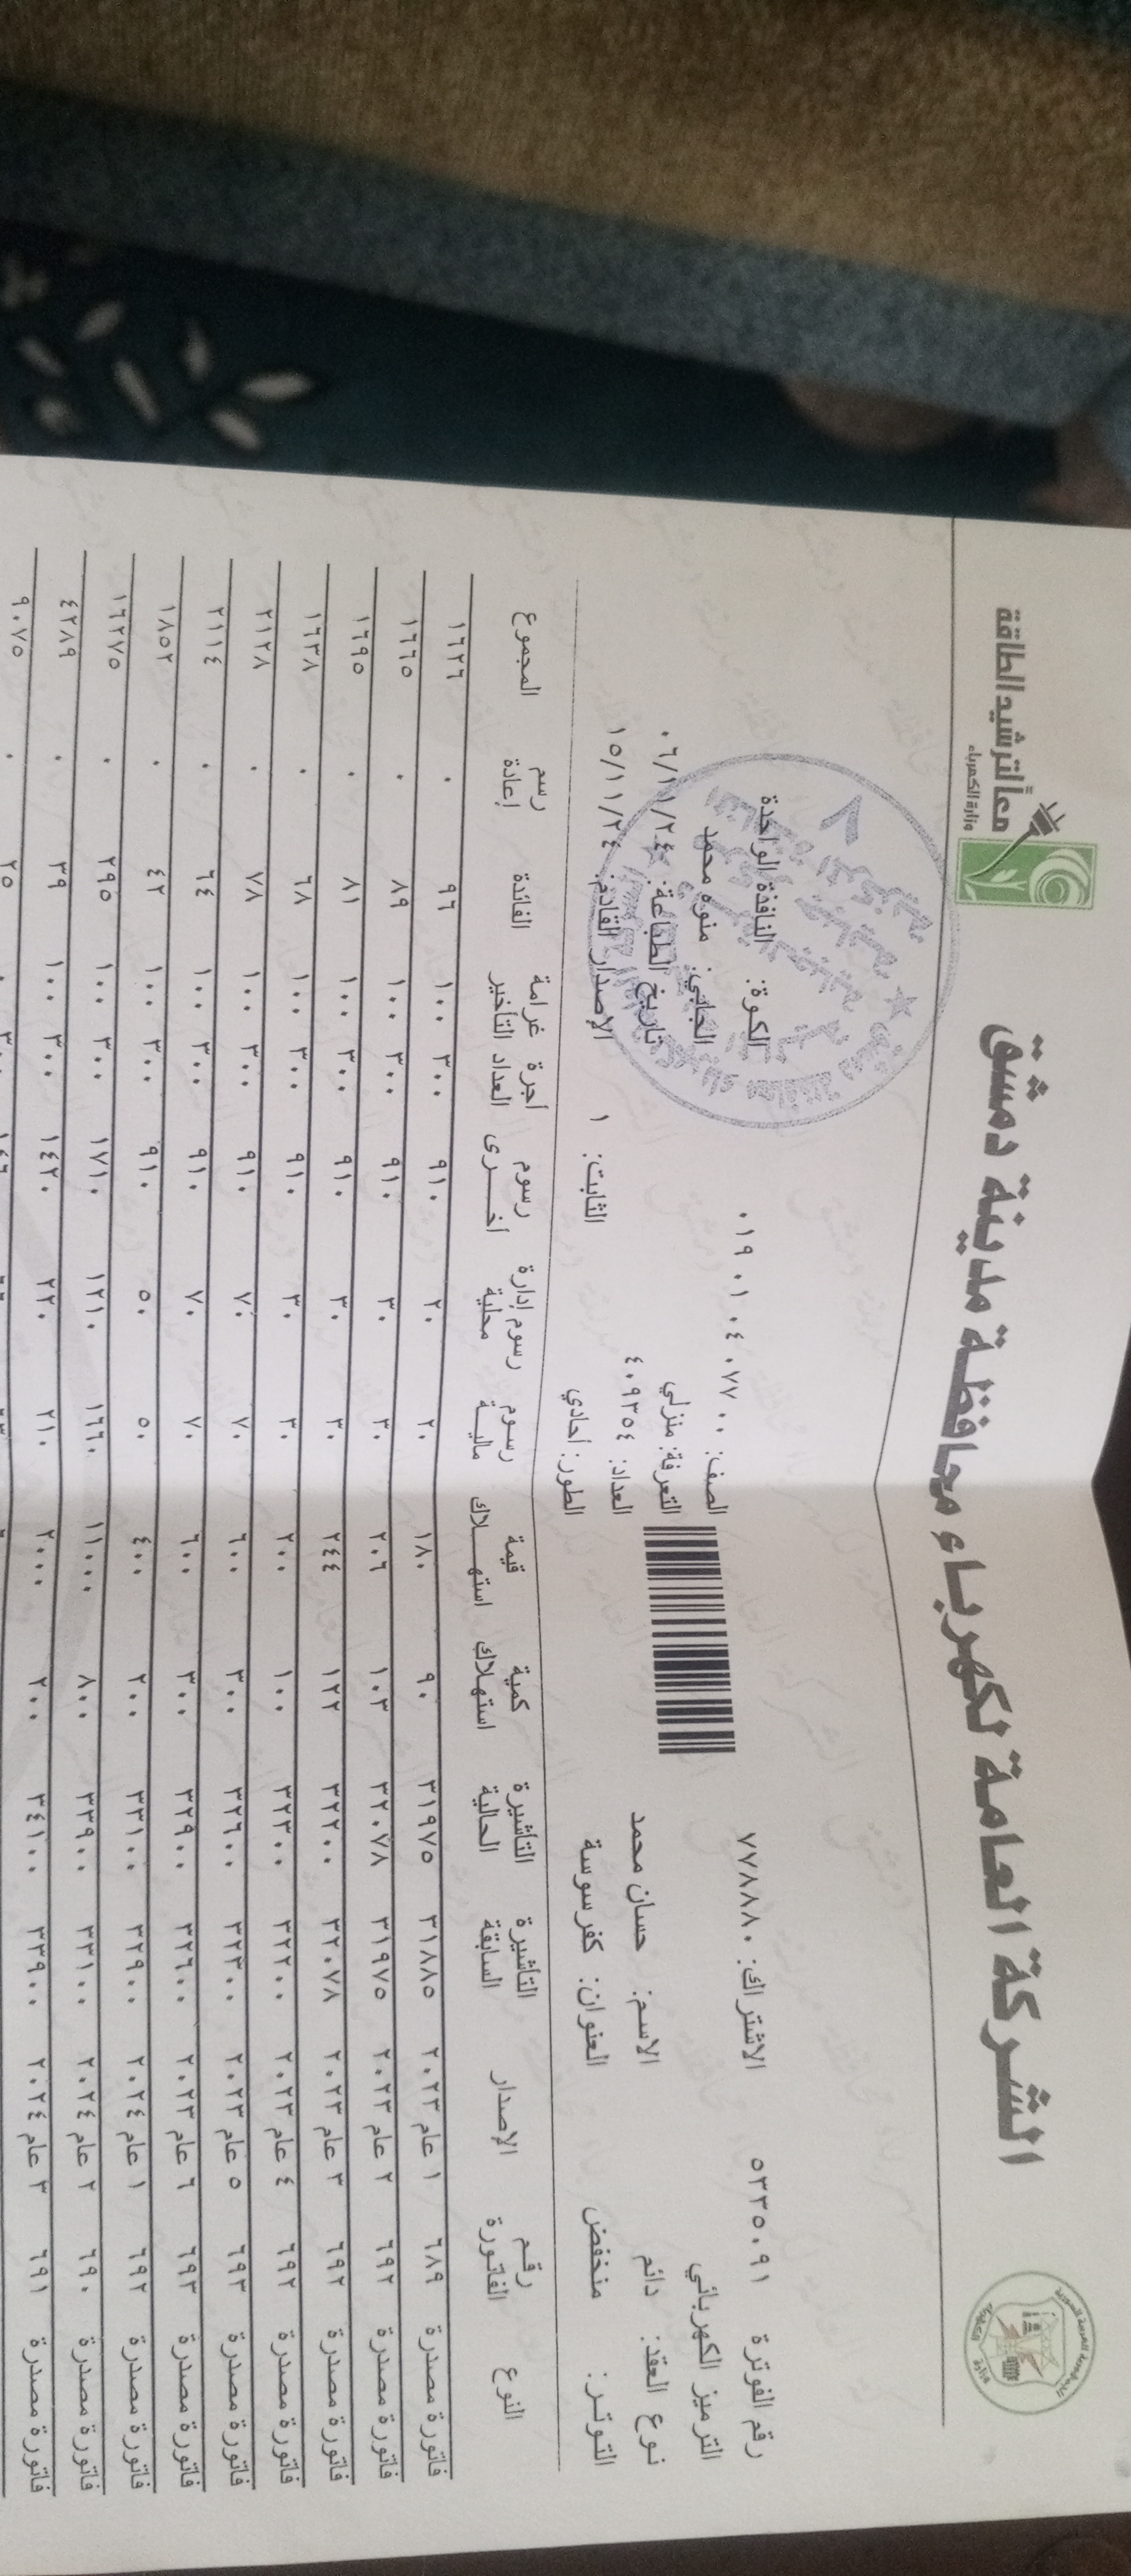 الشركة العامة لكهرباء محافظة مدينة دمشق
معاً لترشيد الطاقة
وزارة الكهرباء
رقم الفوترة ٥٣٣٥٠٩١ الاشتراك: ٧٧٨٨٨٠ الصف: ٠١٩ ٠١ ٠٤ ٠٧٧ ٠٠ الكوة: النافذة الواحدة
الترميز الكهربائي التعرفة: منزلي الجابي: منوه محمد
نوع العقد: دائم الاسم: حسان محمد العداد: ٤٠٩٣٥٤ تاريخ الطباعة: ٠٦/١١/٢٤
التوتر: منخفض العنوان: كفرسوسة الطور: أحادي الثابت: ١ الإصدار القادم: ١٥/١١/٢٤
النوع رقم الفاتورة الإصدار التأشيرة السابقة التأشيرة الحالية كمية استهلاك قيمة استهلاك رسوم مالية رسوم إدارة محلية رسوم أخرى أجرة العداد غرامة التأخير الفائدة رسم إعادة المجموع
فاتورة مصدرة ٦٨٩ ١ عام ٢٠٢٣ ٣١٨٨٥ ٣١٩٧٥ ٩٠ ١٨٠ ٢٠ ٢٠ ٩١٠ ٣٠٠ ١٠٠ ٩٦ ٠ ١٦٢٦
فاتورة مصدرة ٦٩٢ ٢ عام ٢٠٢٣ ٣١٩٧٥ ٣٢٠٧٨ ١٠٣ ٢٠٦ ٣٠ ٣٠ ٩١٠ ٣٠٠ ١٠٠ ٨٩ ٠ ١٦٦٥
فاتورة مصدرة ٦٩٢ ٣ عام ٢٠٢٣ ٣٢٠٧٨ ٣٢٢٠٠ ١٢٢ ٢٤٤ ٣٠ ٣٠ ٩١٠ ٣٠٠ ١٠٠ ٨١ ٠ ١٦٩٥
فاتورة مصدرة ٦٩٢ ٤ عام ٢٠٢٣ ٣٢٢٠٠ ٣٢٣٠٠ ١٠٠ ٢٠٠ ٣٠ ٣٠ ٩١٠ ٣٠٠ ١٠٠ ٦٨ ٠ ١٦٣٨
فاتورة مصدرة ٦٩٣ ٥ عام ٢٠٢٣ ٣٢٣٠٠ ٣٢٦٠٠ ٣٠٠ ٦٠٠ ٧٠ ٧٠ ٩١٠ ٣٠٠ ١٠٠ ٧٨ ٠ ٢١٢٨
فاتورة مصدرة ٦٩٣ ٦ عام ٢٠٢٣ ٣٢٦٠٠ ٣٢٩٠٠ ٣٠٠ ٦٠٠ ٧٠ ٧٠ ٩١٠ ٣٠٠ ١٠٠ ٦٤ ٠ ٢١١٤
فاتورة مصدرة ٦٩٢ ١ عام ٢٠٢٤ ٣٢٩٠٠ ٣٣١٠٠ ٢٠٠ ٤٠٠ ٥٠ ٥٠ ٩١٠ ٣٠٠ ١٠٠ ٤٢ ٠ ١٨٥٢
فاتورة مصدرة ٦٩٠ ٢ عام ٢٠٢٤ ٣٣١٠٠ ٣٣٩٠٠ ٨٠٠ ١١٠٠٠ ١٦٦٠ ١٢١٠ ١٧١٠ ٣٠٠ ١٠٠ ٢٩٥ ٠ ١٦٢٧٥
فاتورة مصدرة ٦٩١ ٣ عام ٢٠٢٤ ٣٣٩٠٠ ٣٤١٠٠ ٢٠٠ ٢٠٠٠ ٢١٠ ٢٢٠ ١٤٢٠ ٣٠٠ ١٠٠ ٣٩ ٠ ٤٢٨٩
٢٥ ٠ ٩٠٧٥